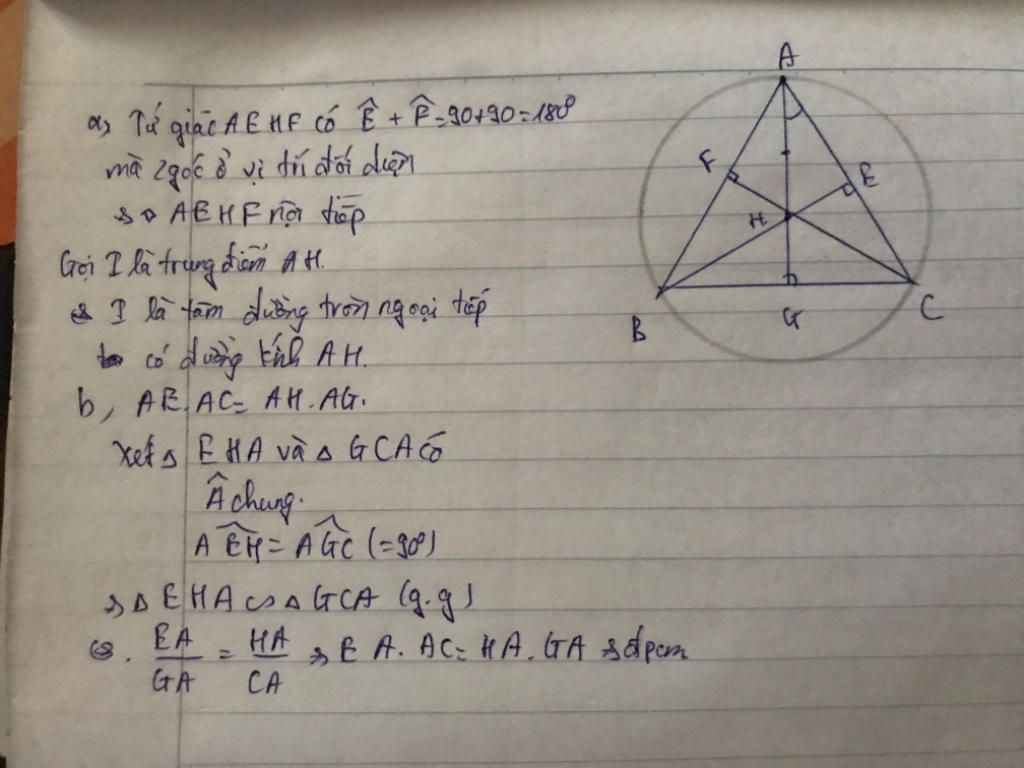 a, Tứ giác AEHF có Ê + F̂ = 90+90 = 180°
mà 2 góc ở vị trí đối diện
⇒ AEHF nội tiếp
Gọi I là trung điểm AH.
⇒ I là tâm đường tròn ngoại tiếp
có đường kính AH.
b, AE.AC = AH.AG.
Xét Δ EHA và Δ GCA có
Â chung.
AÊH = AĜC (=90°)
⇒ Δ EHA ∽ Δ GCA (g.g)
⇒ EA/GA = HA/CA ⇒ EA.AC = HA.GA ⇒ đpcm
A
F
E
H
B
G
C